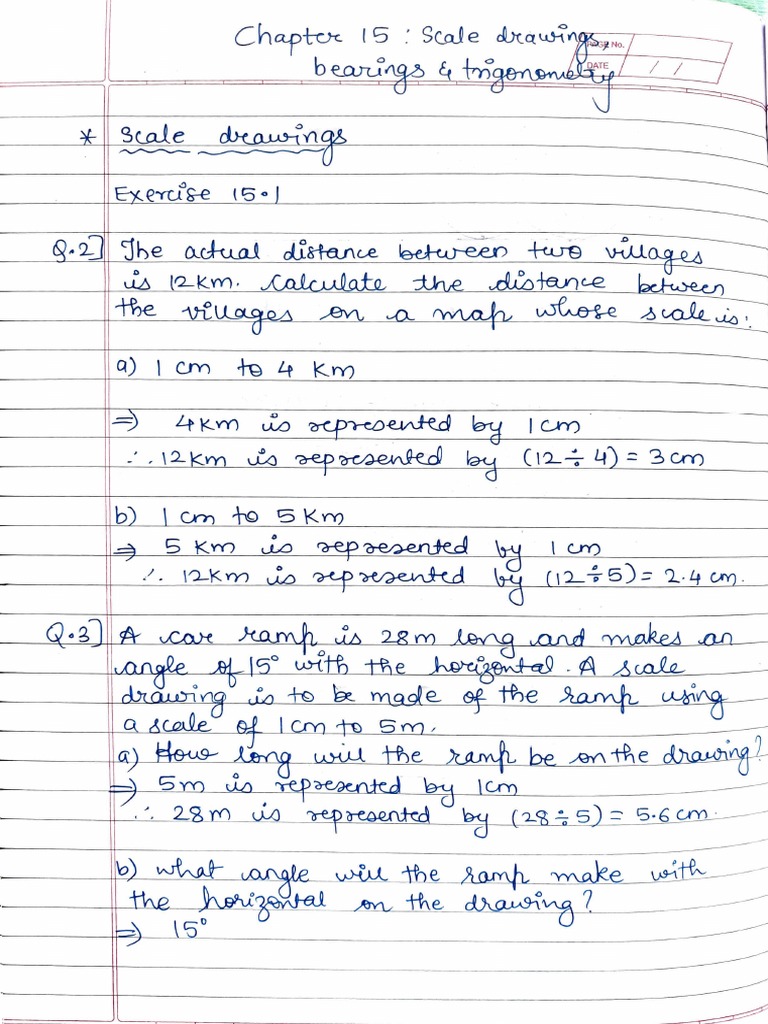 Chapter 15 : Scale drawings,
bearings & trigonometry
PAGE No.
DATE / /
* Scale drawings
Exercise 15.1
Q.2] The actual distance between two villages
is 12 km. Calculate the distance between
the villages on a map whose scale is:
a) 1 cm to 4 km
⇒ 4km is represented by 1cm
∴ 12km is represented by (12 ÷ 4) = 3cm
b) 1 cm to 5 Km
⇒ 5 Km is represented by 1 cm
∴ 12km is represented by (12÷5) = 2.4 cm.
Q.3] A car ramp is 28m long and makes an
angle of 15° with the horizontal. A scale
drawing is to be made of the ramp using
a scale of 1cm to 5m.
a) How long will the ramp be on the drawing?
⇒ 5m is represented by 1cm
∴ 28m is represented by (28÷5) = 5.6 cm.
b) what angle will the ramp make with
the horizontal on the drawing?
⇒ 15°